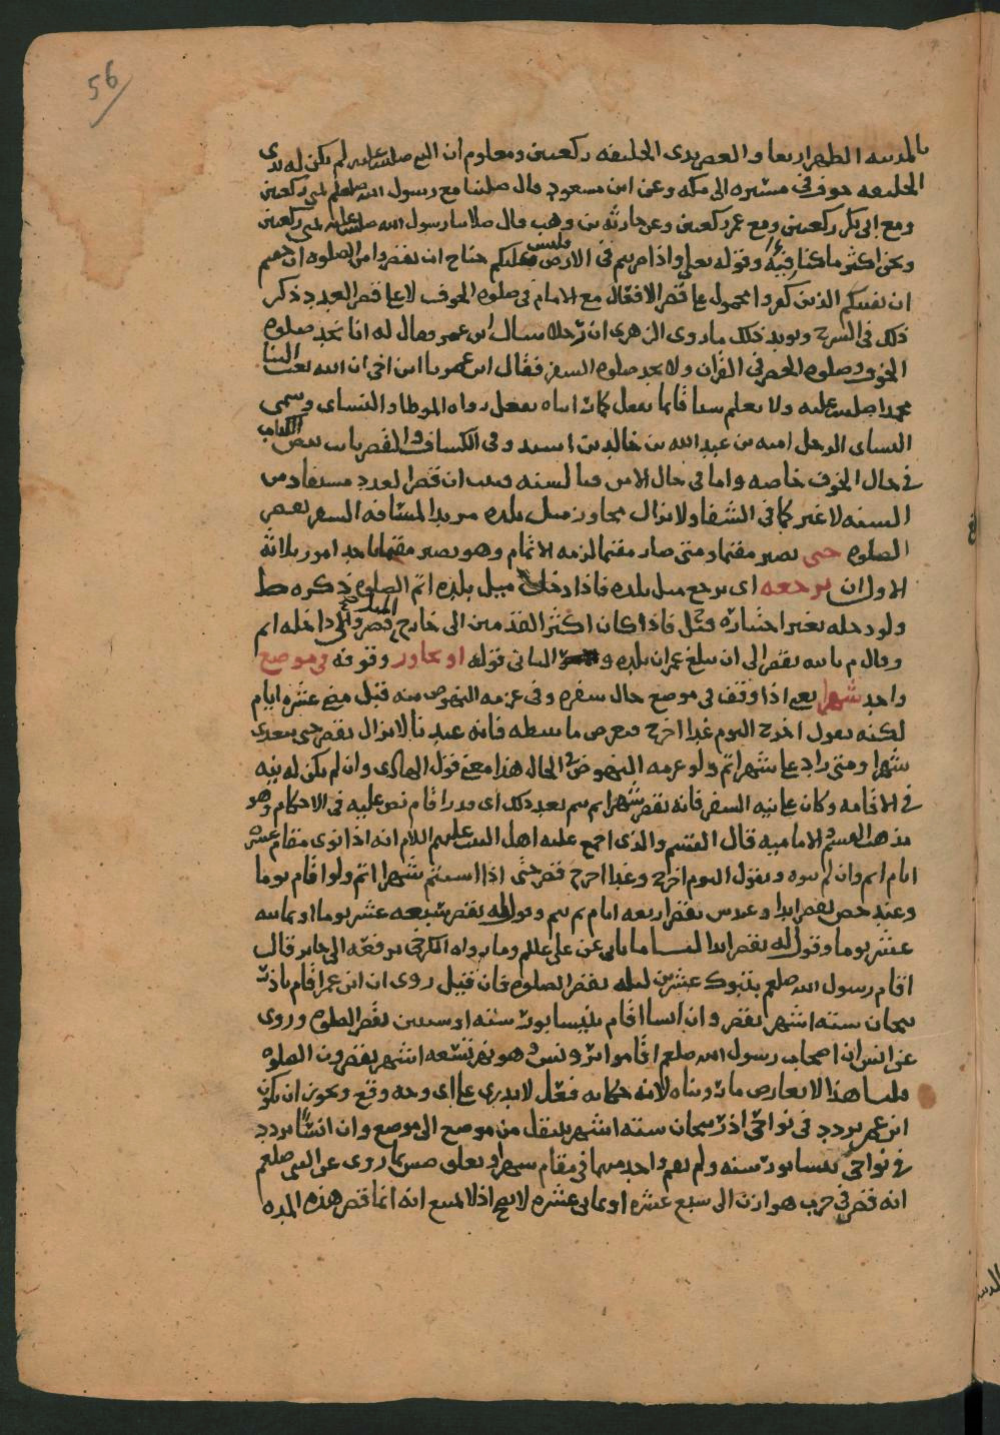 56
بالمدينه الظهر اربعا والعصر بذى الحليفه ركعتين ومعلوم ان النبي صلى الله عليه لم يكن له بذى
الحليفه خوف في مسيره الى مكه وعن ابن مسعود قال صلينا مع رسول الله صلعم بمنى ركعتين
ومع ابي بكر ركعتين ومع عمر ركعتين وعن حارثه بن وهب قال صلى بنا رسول الله صلى الله عليه بمنى ركعتين
ونحن اكثر ما كنا فيه وقوله تعالى واذا ضربتم في الارض فليس عليكم جناح ان تقصروا من الصلوه ان خفتم
ان يفتنكم الذين كفروا محمول على قصر الافعال مع الامام في صلوه الخوف لا على قصر العدد ذكر
ذلك في الشرح ويويد ذلك ما روى الزهرى ان رجلا سال ابن عمر وقال له انا نجد صلوه
الخوف وصلوه الحضر في القران ولا نجد صلوه السفر فقال ابن عمر يا ابن اخى ان الله بعث الينا
محمدا صلى الله عليه ولا نعلم شيا فانما نفعل كما راىناه يفعل رواه الموطا والنساى وسمى
النساى الرجل اميه بن عبد الله بن خالد بن اسيد وفى الكشاف والقصر ثابت بنص الكتاب
في حال الخوف خاصه واما في حال الامن فبالسنه فثبت ان قصر العدد مستفاد من
السنه لا غير كما في الشفا ولا يزال مجاوز ميل بلده مريدا لمسافه السفر يقصر
الصلوه حتى يصير مقيما ومتى صار مقيما لزمه الاتمام وهو يصير مقيما باحد امور ثلاثه
الاول ان يرجعه اى يرجع ميل بلده فاذا دخل ميل بلده اتم الصلوه ذكره ط
ولو دخله بغير اختياره قيل فاذا كان اكثر القدمين الى خارج الميل قصر والى داخله اتم
وقال م بالله يقصر الى ان يبلغ عمران بلده و الثانى قوله او تجاوز وقوفه في موضع
واحد شهرا يعني اذا وقف في موضع حال سفره وفى عزمه النهوض منه قبل مضي عشره ايام
لكنه يقول اخرج اليوم غدا اخرج فيعرض ما يبطه فانه عندنا لا يزال يقصر حتى يتعدى
شهرا ومتى زاد على شهر اتم ولو عزمه النهوض في الحال هذا معنى قول الهادى وان لم يكن له نيه
في الاقامه وكان على نيه السفر فانه يقصر شهرا ثم يتم بعد ذلك اى قدر اقام نص عليه في الاحكام وهو
مذهب القسم والاماميه قال القسم والذى اجمع عليه اهل البيت عليهم السلام انه اذا نوى مقام عشره
ايام اتم وان لم ينوه ويقول اليوم اخرج وغدا اخرج قصر حتى اذا استتم شهرا اتم ولو اقام يوما
وعند حص يقصر ابدا وعند ش يقصر اربعه ايام ثم يتم وقول له يقصر سبعه عشر يوما او ثمانيه
عشر يوما وقول له يقصر ابدا لنا ما ياتى عن علي عليلم وما رواه الكرخي يرفعه الى جابر قال
اقام رسول الله صلعم بتبوك عشرين ليله يقصر الصلوه فان قيل روى ان ابن عمر اقام باذر
بيجان سته اشهر يقصر وان انسا اقام بنيسابور سنه او سنتين يقصر الصلوه وروى
عن انس ان اصحاب رسول الله صلعم اقاموا تسعه اشهر يقصرون الصلوه
قلنا هذا لا يعارض ما رويناه لانه حكايه فعل لا يدرى على اى وجه وقع ويجوز ان يكون
ابن عمر يردد في نواحى اذربيجان سته اشهر ينتقل من موضع الى موضع وان انسا تردد
في نواحى نيسابور سنه ولم يقم واحد منهما في مقام شهرا وتعلق ص بما روى عن النبي صلعم
انه قصر في حرب هوازن الى سبع عشره او ثمانى عشره لا يصح اذ لا يمتنع انه انما قصر هذه المده